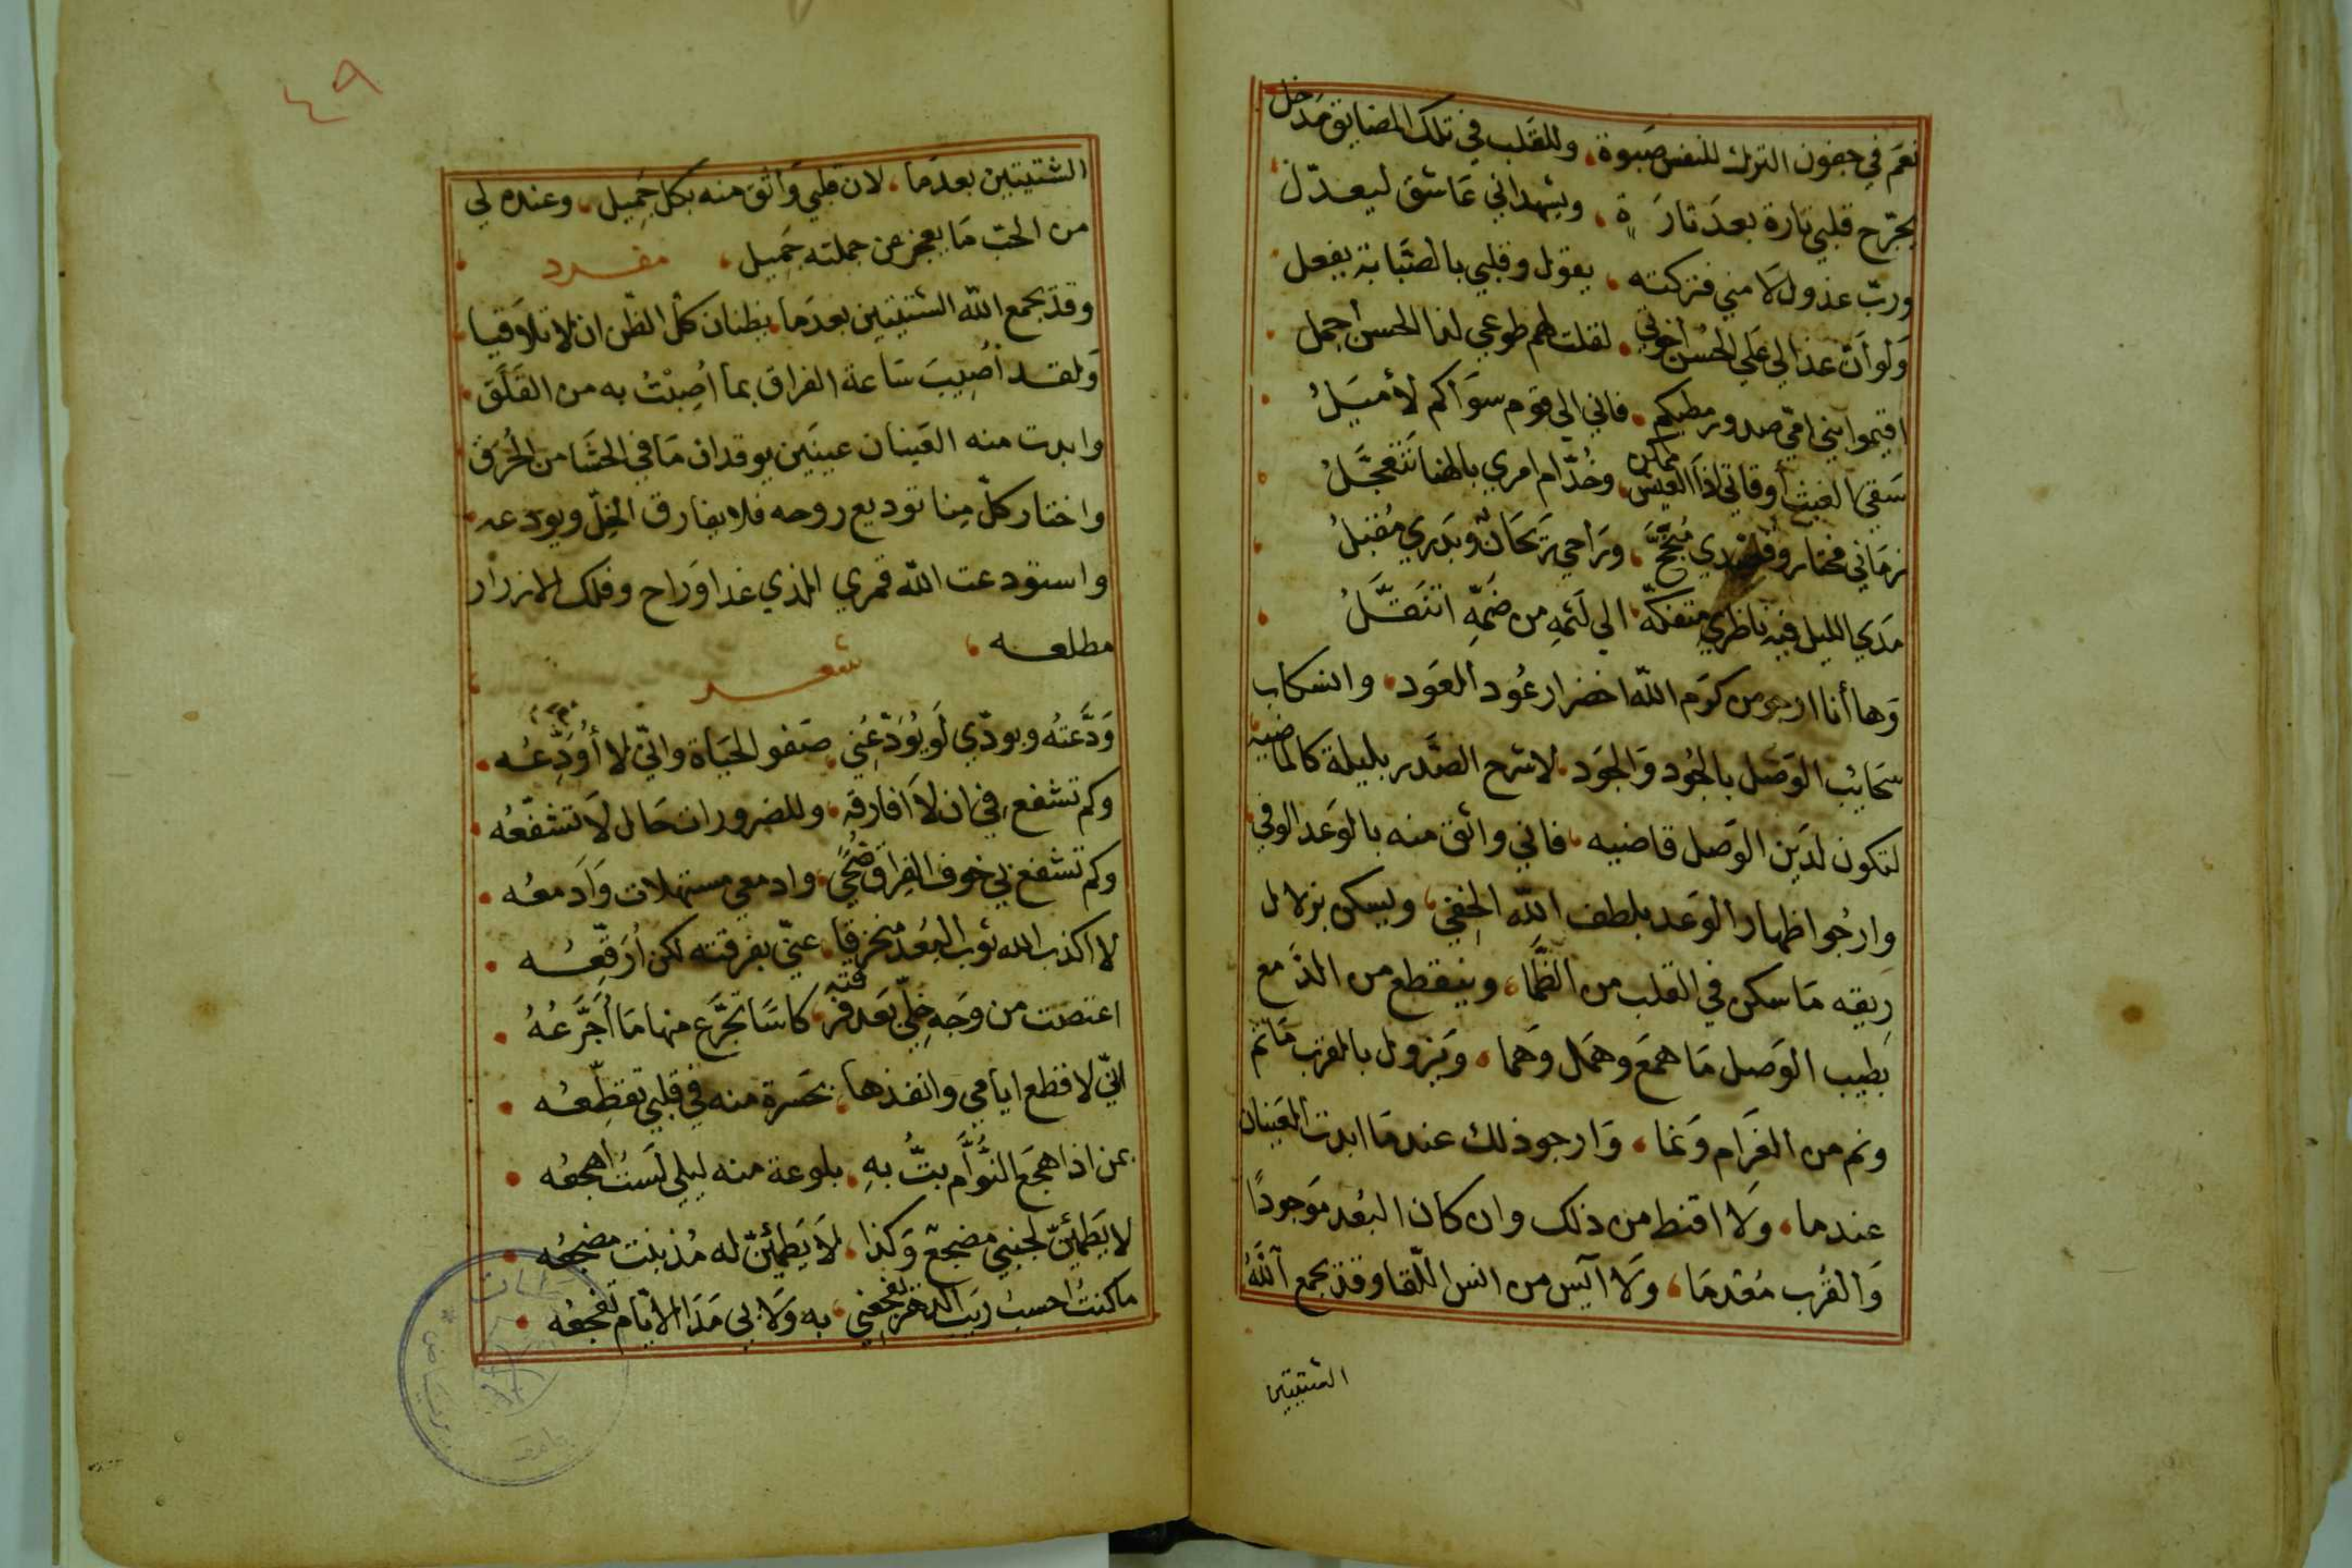 نعم في جفون الترك للنفس صبوة، وللقلب في تلك المضايق مدخل
يجرّح قلبي تارة بعد تارة، ويشهد اني عاشق ليعدّل
وربّ عذول لامني فتركته، يقول وقلبي بالصّبابة يفعل
ولو أنّ عذالي على الحسن اخوتي، لقلت لهم طوعي لذا الحسن أجمل
اقيموا بني امّي صدور مطيكم، فاني الى قوم سواكم لأميل
سقى الغيث أوقاتي اذا العيش ممكن، وخُدّام امري بالهنا تتعجّلُ
زماني مختار مُنجّح، وراحي ريحان وبدري مُقبلُ
مدي الليل فيه ناظري متفكّه، الى لثمه من ضمّه اتنقّلُ
وها أنا ارجو من كرم الله اخضرار عُود العود، وانسكاب
سحايب الوصل بالجُود والجَود، لاشرح الصدر بليلة كالماضيه
لتكون لدين الوصل قاضيه، فاني واثق منه بالوعد الوفي
وارجُوا اظهار الوعد بلطف الله الخفي، ويسكن بزلال
ريقه ما سكن في القلب من الظّما، وينقطع من الدّمع
بطيب الوصل ما همع وهمل وهما، ويزول بالقرب ما تم
ونم من الغرام ونما، وارجو ذلك عندما ابدت العينان
عندما، ولا اقنط من ذلك وان كان البُعد موجودًا
والقُرب مُعْدما، ولا آيس من انس اللّقا وقد يجمع الله
الشتيتين
٤٩
الشتيتين بعدما، لان قلبي واثق منه بكل جميل، وعنده لي
من الحبّ ما يعجز عن جملته جميل، مفرد
وقد يجمع الله الشتيتين بعدما، يظنان كلّ الظّن ان لا تلاقيا
ولقد أُصيب ساعة الفراق بما أُصِبْتُ به من القلق
وابدت منه العينان عينين يوقدان ما في الحشا من الحُرَق
واختار كلّ منا توديع روحه فلا يفارق الخلّ ويودعه
واستودعت الله قمري الذي غدا وراح وفلك الازرار
مطلعه، شعر
ودّعتُه وبودّي لو يُودّعني، صفو الحياة وانّي لا أُودّعُه
وكم تشفع في ان لا أفارقه، وللضرورات حال لا تشفّعُه
وكم تشفع بي خوف الفراق ضُحًى، وادمعي مستهلات وأدمعُه
لا اكذب الله ثوب البُعد منخرقا، عنّي بفرقته لكن أُرقّعُه
اعتضت من وجه خلّي بعد فرقته، كاسًا تجرّع منها ما أُجرّعُهُ
انّي لاقطع ايامي وانفذها، بحسرة منه في قلبي تقطّعُه
بمن اذا هجع النّوّام بتُّ به، بلوعة منه ليلي لستُ اهجعُه
لا يطمئنّ لجنبي مضجع وكذا، لا يطمئنّ له مُذ بنت مضجعُه
ما كنتُ احسبُ ريب الدهر يفجعني، به ولا بي مدا الايّام تفجعُه